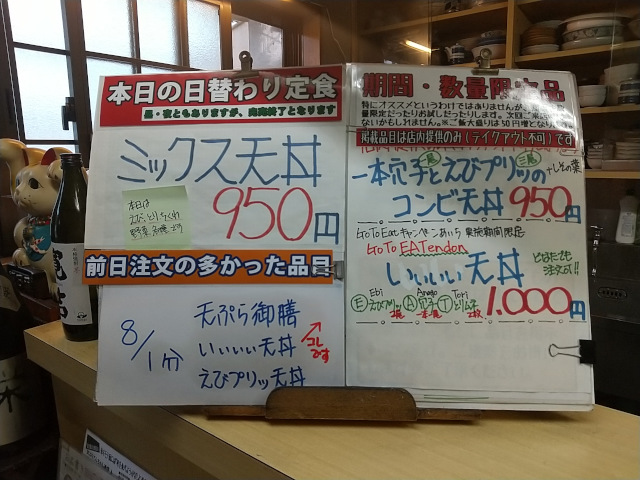 本日の日替わり定食
昼・夜ともありますが、完売終了となります
ミックス天丼
950円
本日は
えび、とり、ちくわ
野菜
前日注文の多かった品目
8/1分
天ぷら御膳
いいいい天丼
えびプリッ天丼
コレ
です
期間・数量限定品
特にオススメというわけではありませんが、
量限定だったりお試しだったりします。次回ご
ないかもしれません。※ご飯大盛りは50円増と
掲載品目は店内提供のみ(テイクアウト不可)です
一本穴子とえびプリッの
+しその葉
コンビ天丼 950円
GoToEatキャンペーンあいち 実施期間限定
GoTo EATendon
いいいい天丼
どなたでも
注文可!!
Ebi Anago Tori
E えびプリッ 2尾 A 穴子 一本 T とり 2枚 1,000円